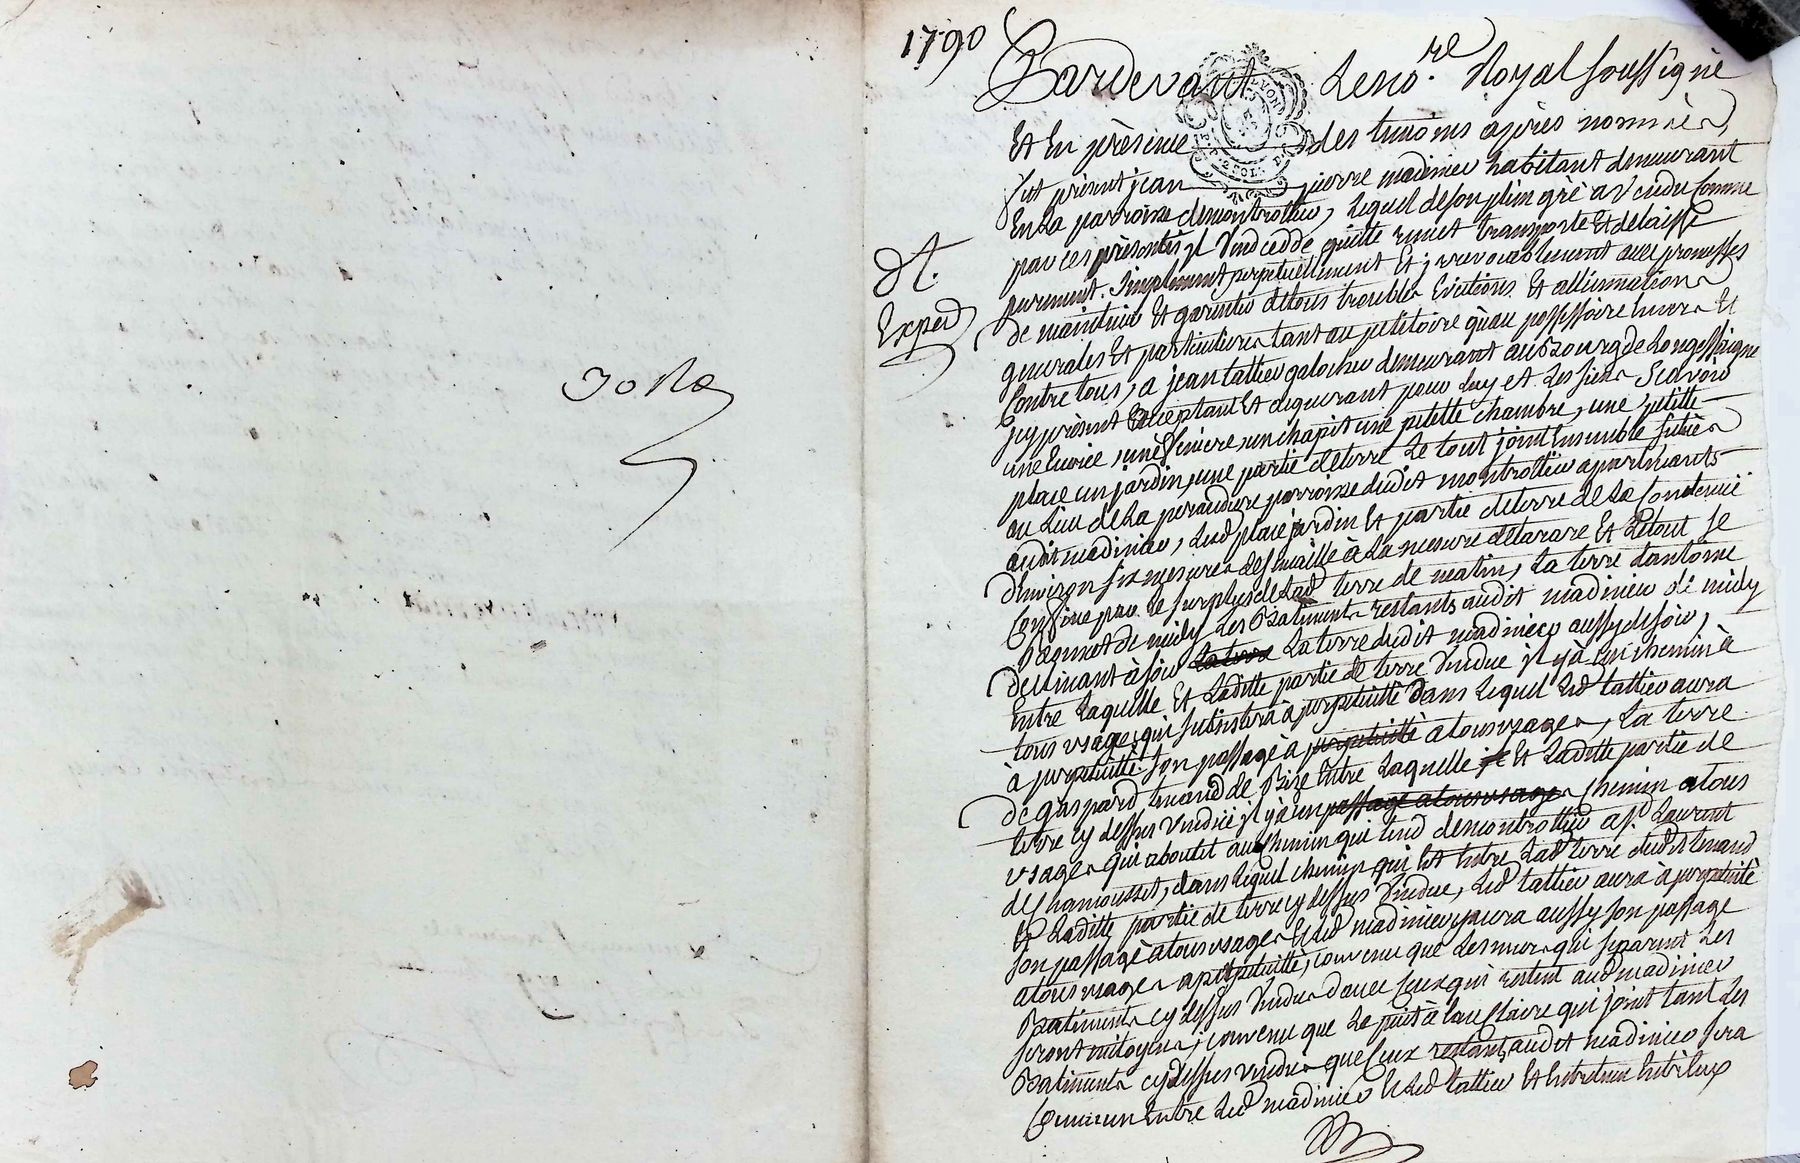 1790
Pardevant Le no.re Royal soussigné
Et En présence des temoins après nommés,
fut présent jean pierre madinier habitant demeurant
En La parroisse de montrottier, Lequel de son plein gré a Vendu Comme
par ces présentes jl Vend cedde quitte remet transporte Et delaisse
purement. Simplement perpetuellement Et jrrevocablement avec promesses
de maintenir Et garentir de tous troubles Evictions Et alliennations
generales Et particulieres tant au petitoire qu'au possessoire Envers Et
Contre tous, a jean tallier galocher demeurant au Bourg de Longessaigne
jcy présent acceptant Et acquerant pour luy et Les siens Scavoir
une Ecurie, une feniere, un chapit une petitte chambre, une petitte
place un jardin, une partie de terre Le tout joint Ensemble situés
au Lieu de La peraudiere parroisse dudit montrottier apartenants
audit madinier, Lesd place jardin Et partie de terre de La Contenue
d'Environ six mesures de semaille à La mesure de tarare Et Le tout se
Confine par Le surplus de Lad terre de matin, La terre d'antoine
de midy Les Batiments restants audit madinier de midy
declinant à soir La terre La terre dudit madinier aussy de soir,
Entre Laquelle Et Laditte partie de terre Vendue jl y à un chemin à
tous usages qui subsistera à perpetuitté dans Lequel Led tallier aura
à perpetuitté son passage à perpetuitté a tous usages, La terre
de gaspard de Bize Entre Laquelle Et Laditte partie de
terre cy dessus Vendue jl y à un passage a tous usages chemin a tous
usages qui aboutit au chemin qui tend de montrottier a St Laurent
de Chamousset, dans Lequel chemin qui Est Entre Lad terre dudit
Et Laditte partie de terre cy dessus Vendue, Led tallier aura à perpetuitté
son passage a tous usages Et Led madinier y aura aussy son passage
a tous usages a perpetuitté, convenu que Les murs qui separent Les
Batiments cy dessus Vendus d'avec Ceux qui restent aud madinier
seront mitoyens, convenu que Le puit à Eau Claire qui joint tant Les
Batiments cy dessus vendus que Ceux restants audit madinier sera
Commun Entre Led madinier Et Led tallier Et Entretenu Entr'Eux
dt.
Exped